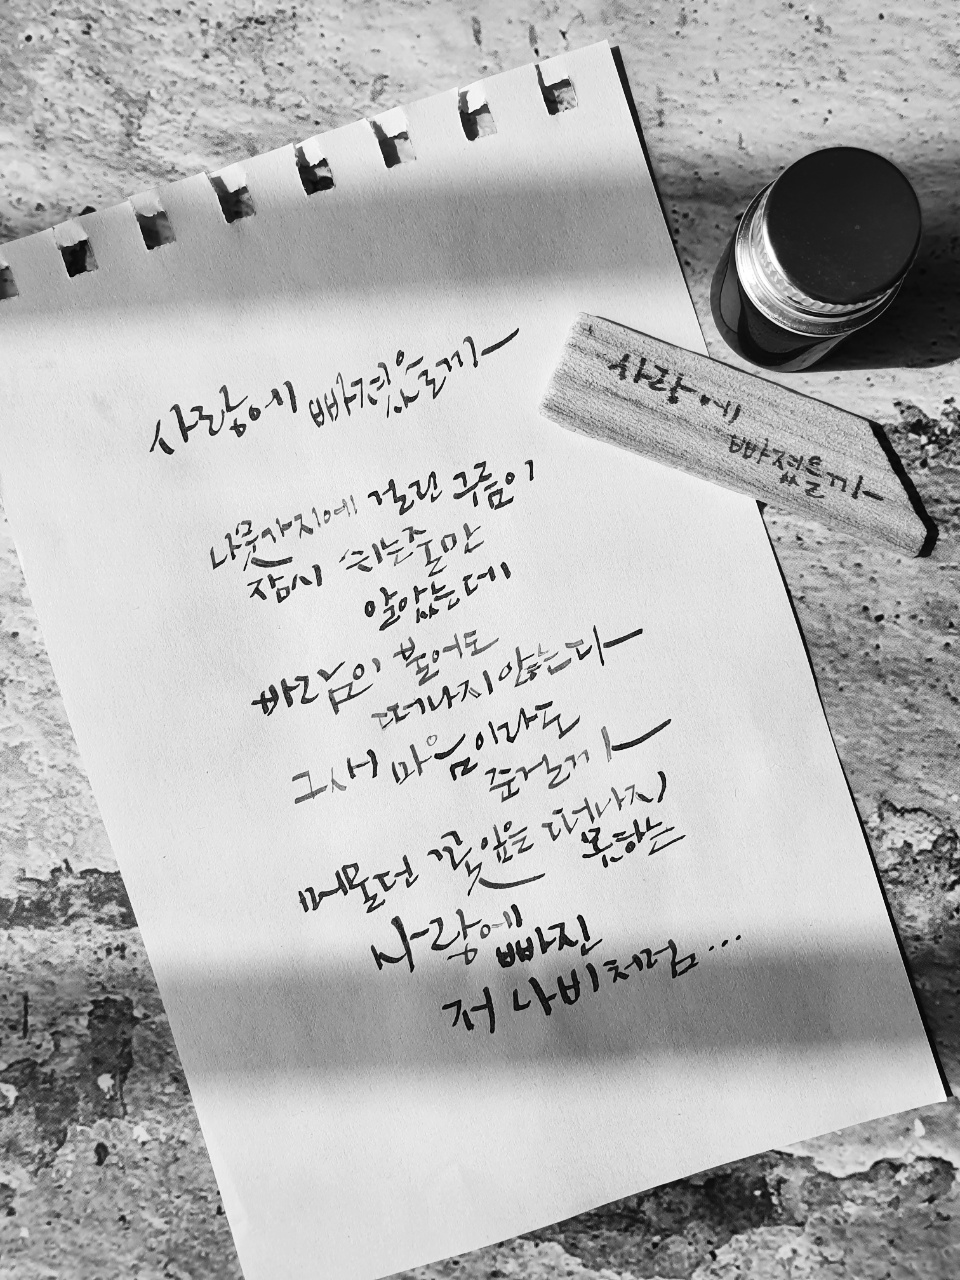 사랑에 빠졌을까
나뭇가지에 걸린 구름이
잠시 쉬는줄만
알았는데
바람이 불어도
떠나지 않는다
그새 마음이라도
준걸까
머물던 꽃잎을 떠나지
못하는
사랑에 빠진
저 나비처럼...
사랑에
빠졌을까